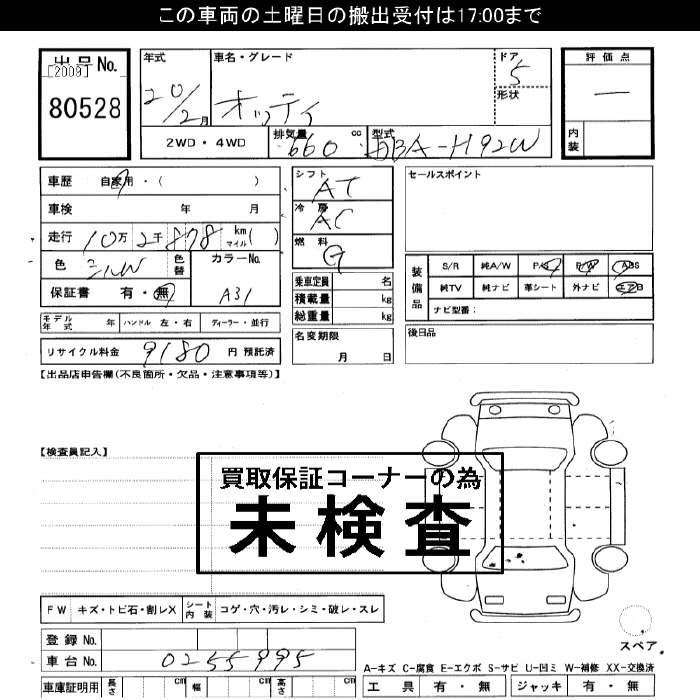 この車両の土曜日の搬出受付は17:00まで
出品No.
[2009]
80528
年式
20/2月
車名・グレード
オッティ
ドア
5
形状
2WD・4WD
排気量
660 cc
型式
DBA-H92W
評価点
―
内装
車歴 自家用・( )
車検 年 月
走行 10万 2千 878 km マイル ( )
色 シルW
色替
カラーNo.
A31
保証書 有・無
モデル年式 年 ハンドル 左・右 ディーラー・並行
リサイクル料金 9180 円 預託済
シフト
AT
冷房
AC
燃料
G
乗車定員 名
積載量 kg
総重量 kg
名変期限
月 日
セールスポイント
装備品
S/R 純A/W P/S P/W ABS
純TV 純ナビ 革シート 外ナビ エアB
ナビ型番:
後日品
【出品店申告欄(不良箇所・欠品・注意事項等)】
【検査員記入】
買取保証コーナーの為
未検査
FW キズ・トビ石・割レX
シート内装 コゲ・穴・汚レ・シミ・破レ・スレ
登録No.
車台No. 0255995
車庫証明用 長さ cm 幅 cm 高さ cm
スペア
A-キズ C-腐食 E-エクボ S-サビ U-凹ミ W-補修 XX-交換済
工具 有・無 ジャッキ 有・無